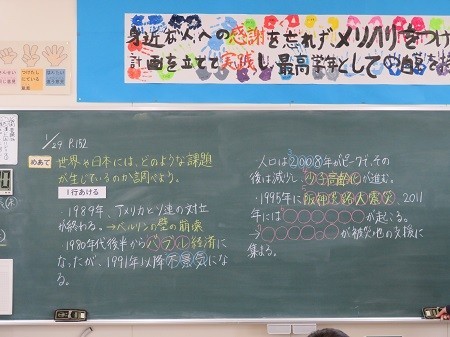 身近な人への感謝を忘れず、メリハリをつけ
計画を立てて実践し、最高学年としての自覚を持
1/29 P.152
めあて 世界や日本には、どのような課題
が生じているのか調べよう。
1行あける
・1989年、アメリカとソ連の対立
が終わる。→ベルリンの壁の崩壊
・1980年代後半からバブル経済に
なったが、1991年以降不景気にな
る。
・人口は2008年がピークで、その
後は減少し少子高齢化が進む。
・1995年に阪神淡路大震災、2011
年には○○○○○○が起こる。
→○○○○○○○が被災地の支援に
集まる。